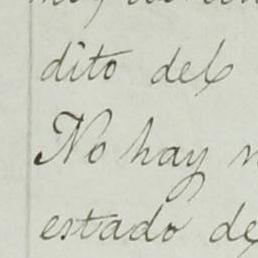 dito del
No hay
estado de